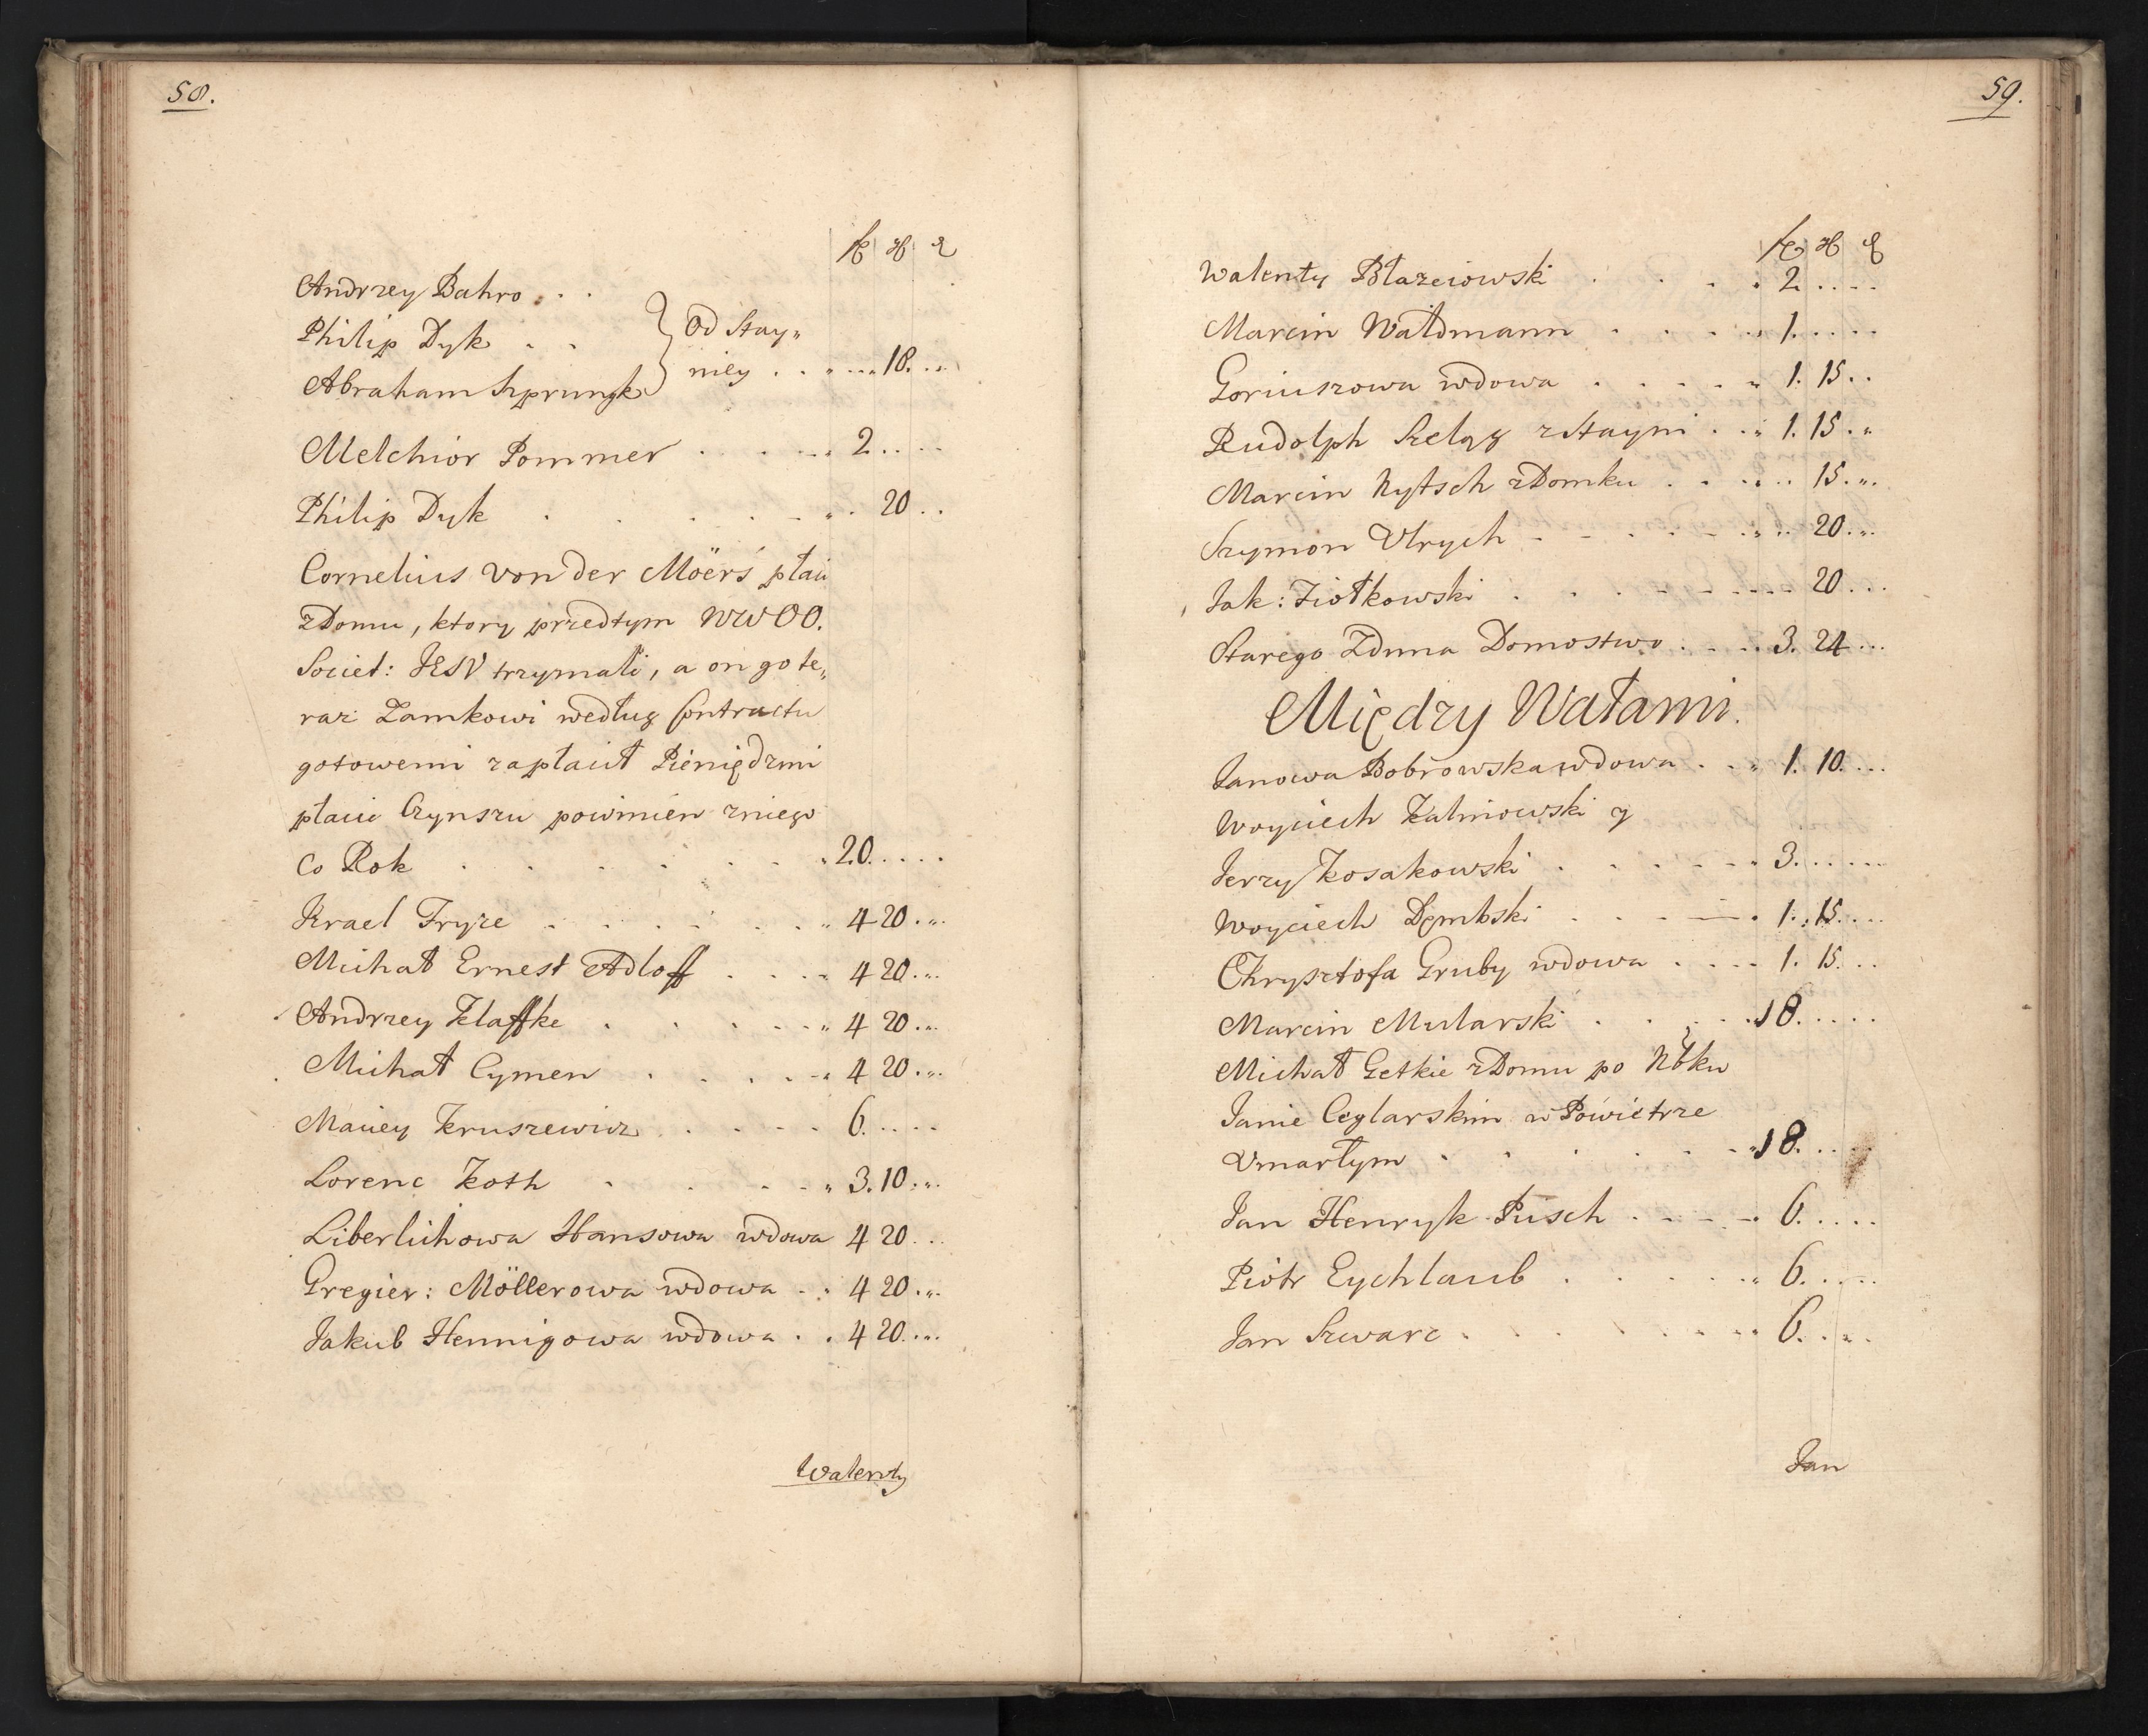 58.
Andrzey Bahro . . .
Philip Dyk . . Od Stay„
Abraham Szprungk niey . . 18. . .
Melchior Pommer . . . . 2. . . .
Philip Dyk . . . . . 20 . .
Cornelius von der Möers płaci
z Domu, ktory przedtym WWOO.
Societ: JESV trzymali, a on go te„
raz Zamkowi według Contractu
gotowemi zapłacił Pieniędzmi
płacic Czynszu powinien zniego
Co Rok . . . . . 20. . . . .
Israel Fryze . . . . . 4 20 . . .
Michał Ernest Adloff . . . . 4 20 . . .
Andrzey Klaffke . . . . . 4 20 . . .
Michał Cymen . . . . . 4 20 . . .
Maciey Kruszewicz . . . . 6. . . . .
Lorenc Koth . . . . . 3. 10 . . .
Liberlichowa Hansowa wdowa 4 20 . . .
Gregier: Möllerowa wdowa . . 4 20 . . .
Jakub Hennigowa wdowa . . 4 20 . . .
Walenty
59.
Walenty Błazeiowski . . . . 2. . . . .
Marcin Wałdmann . . . . 1. . . . .
Goriuszowa wdowa . . . . . 1. 15 . .
Rudolph Szeląg z Stayni . . 1. 15 . .
Marcin Nytsch z Domku . . . . 15. . .
Szymon Vlrych . . . . . 20. . .
Jak: Ziołkowski . . . . . 20. . .
Starego Zduna Domostwo . . . . 3. 24 . . .
Między Wałami.
Janowa Bobrowska wdowa . . . 1. 10. . . .
Woyciech Kalinowski y
Jerzy Kosakowski . . . . . 3. . . . .
Woyciech Dęmbski . . . . . 1. 15. . . .
Chrysztofa Gruby wdowa . . . . 1. 15. . .
Marcin Mularski . . . . 18. . . . .
Michał Getkie z Domu po Nbku
Janie Ceglarskim w Powietrze
Vmarłym . . . . . 18. . . .
Jan Henryk Püsch . . . . . 6. . . . .
Piotr Eychlaub . . . . . 6. . . . .
Jan Szwarc . . . . . . 6. . . . .
Jan